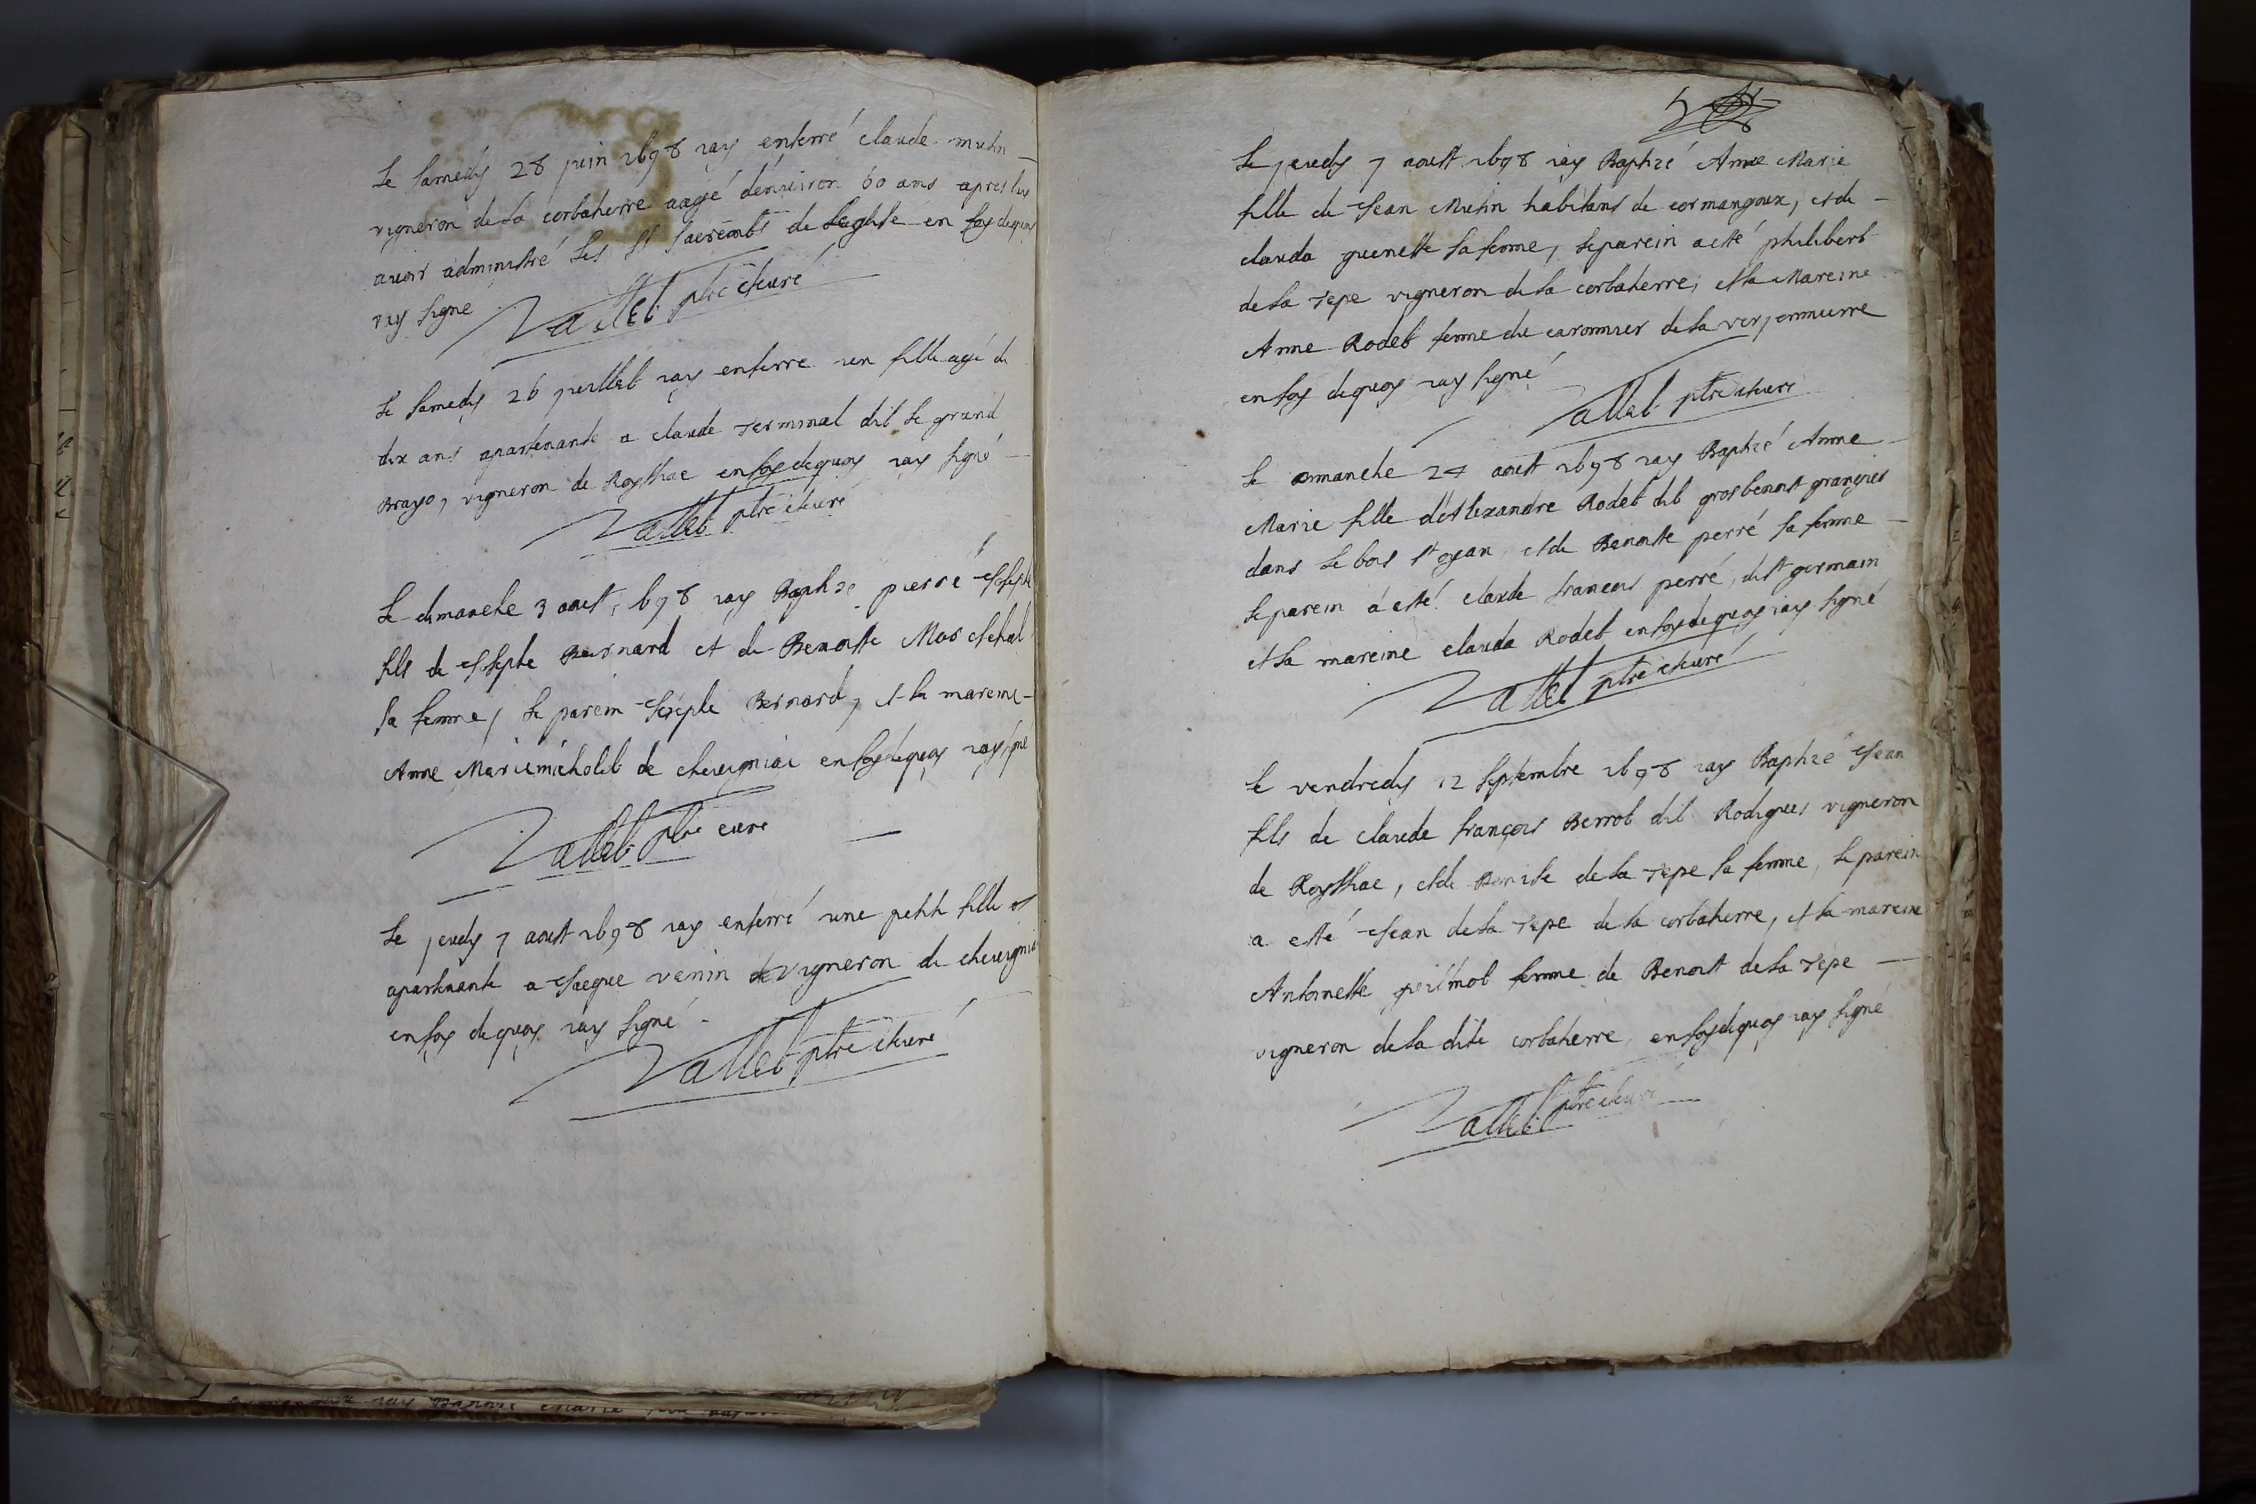 Le samedy 28 juin 1698 j'ay enterré claude mutin
vigneron de la corbaterre aagé d'enuiron 60 ans apres luy
auoir administré les Sts sacrements de leglise en foy dequoy
j'ay signé Vallet ptre et curé
Le samedy 26 juillet j'ay enterré un fille agé de
dix ans apartenante a claude terminal dit le grand
Brayo, vigneron de en foy dequoy j'ay signé
Vallet ptre et curé
Le dimanche 3 aoust 1698 j'ay Baptizé pierre Joseph
fils de Joseph Bernard et de Benoitte Marechal
sa femme, le parein Joseph Bernard, et la mareine
Anne Marie micholet de cheuigniac en foy dequoy j'ay signé
Vallet ptre curé
Le jeudy 7 aoust 1698 j'ay enterré une petite fille
apartenante a Jacque venin vigneron de cheuignia
en foy dequoy j'ay signé
Vallet ptre et curé
Le jeudy 7 aoust 1698 j'ay Baptizé Anne Marie
fille de Jean Mutin habitans de cormangoux, et de
clauda guenette sa femme, le parein a esté philibert
de la tepe vigneron de la corbaterre, et la Mareine
Anne Rodet femme du de la verjonniere
en foy dequoy j'ay signé
Vallet ptre et curé
Le dimanche 24 aoust 1698 j'ay Baptizé Anne
Marie fille d'Alexandre Rodet dit gros benoist granger
dans le bois st oyan et de Benoitte perré sa femme
le parein a esté claude francois perré, de st germain
et la mareine clauda Rodet en foy de quoy j'ay signé
Vallet ptre et curé
Le vendredy 12 septembre 1698 j'ay Baptizé Jean
fils de claude françois Berrot dit Rodigues vigneron
de , et de Benoite de la tepe sa femme, le parein
a esté Jean de la tepe de la corbaterre, et la mareine
Antoinette femme de Benoist de la tepe
vigneron de la dite corbaterre en foy dequoy j'ay signé
Vallet ptre et curé